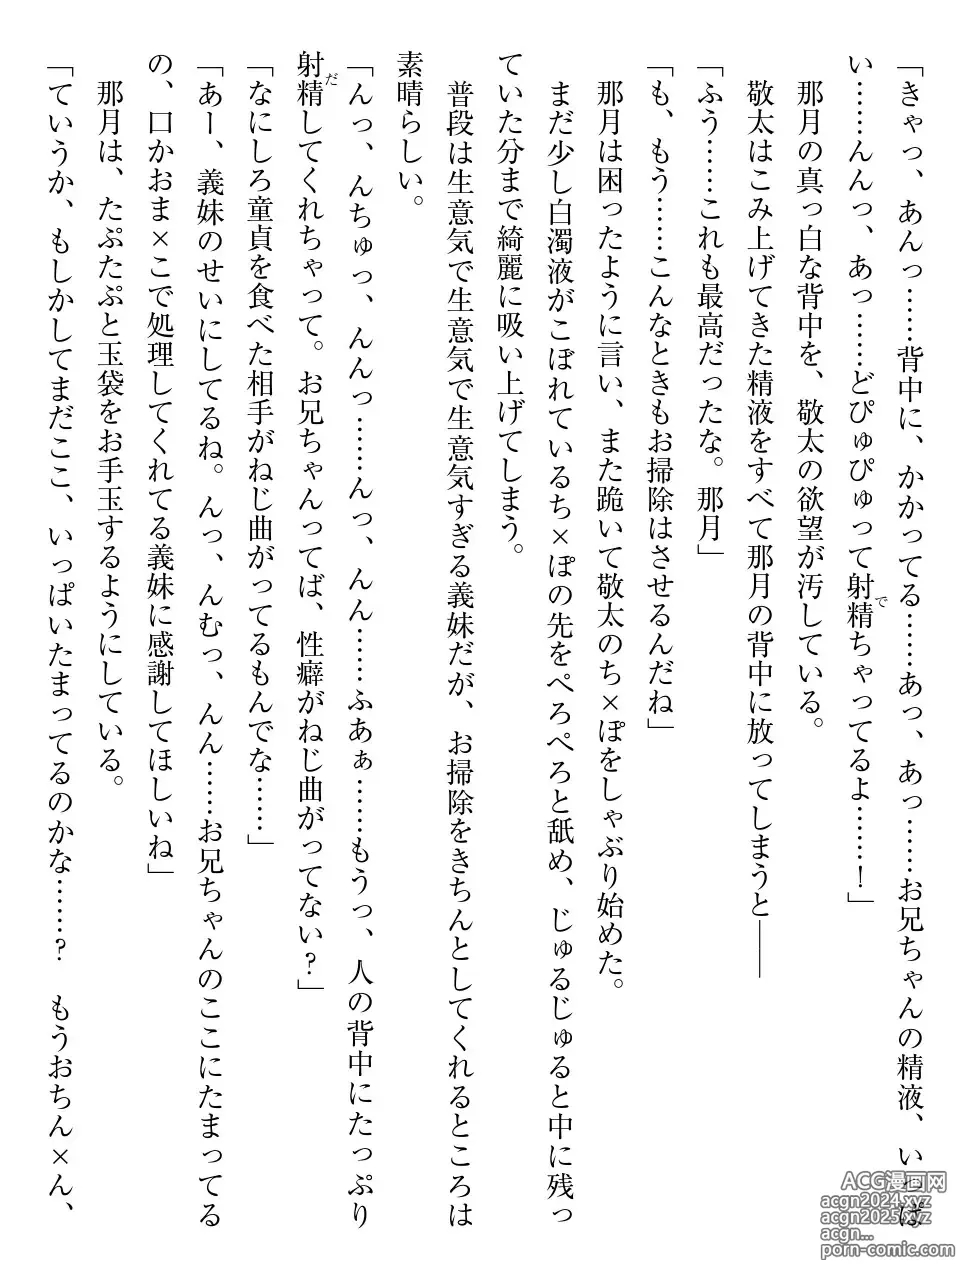 「きゃっ、あんっ……背中に、かかってる……あっ、あっ……お兄ちゃんの精液、いっぱ
い……んんっ、あっ……どぴゅぴゅって射精ちゃってるよ……！」
那月の真っ白な背中を、敬太の欲望が汚している。
敬太はこみ上げてきた精液をすべて那月の背中に放ってしまうと――
「ふう……これも最高だったな。那月」
「も、もう……こんなときもお掃除はさせるんだね」
那月は困ったように言い、また跪いて敬太のち×ぽをしゃぶり始めた。
まだ少し白濁液がこぼれているち×ぽの先をぺろぺろと舐め、じゅるじゅると中に残っ
ていた分まで綺麗に吸い上げてしまう。
普段は生意気で生意気で生意気すぎる義妹だが、お掃除をきちんとしてくれるところは
素晴らしい。
「んっ、んちゅっ、んんっ……んっ、んん……ふあぁ……もうっ、人の背中にたっぷり
射精してくれちゃって。お兄ちゃんってば、性癖がねじ曲がってない？」
「なにしろ童貞を食べた相手がねじ曲がってるもんでな……」
「あー、義妹のせいにしてるね。んっ、んむっ、んん……お兄ちゃんのここにたまってる
の、口かおま×こで処理してくれてる義妹に感謝してほしいね」
那月は、たぷたぷと玉袋をお手玉するようにしている。
「ていうか、もしかしてまだここ、いっぱいたまってるのかな……？　もうおちん×ん、
で
だ
ACG漫画网
acgn2024.xyz
acgn2025.xyz
acgn...
porn-comic.com